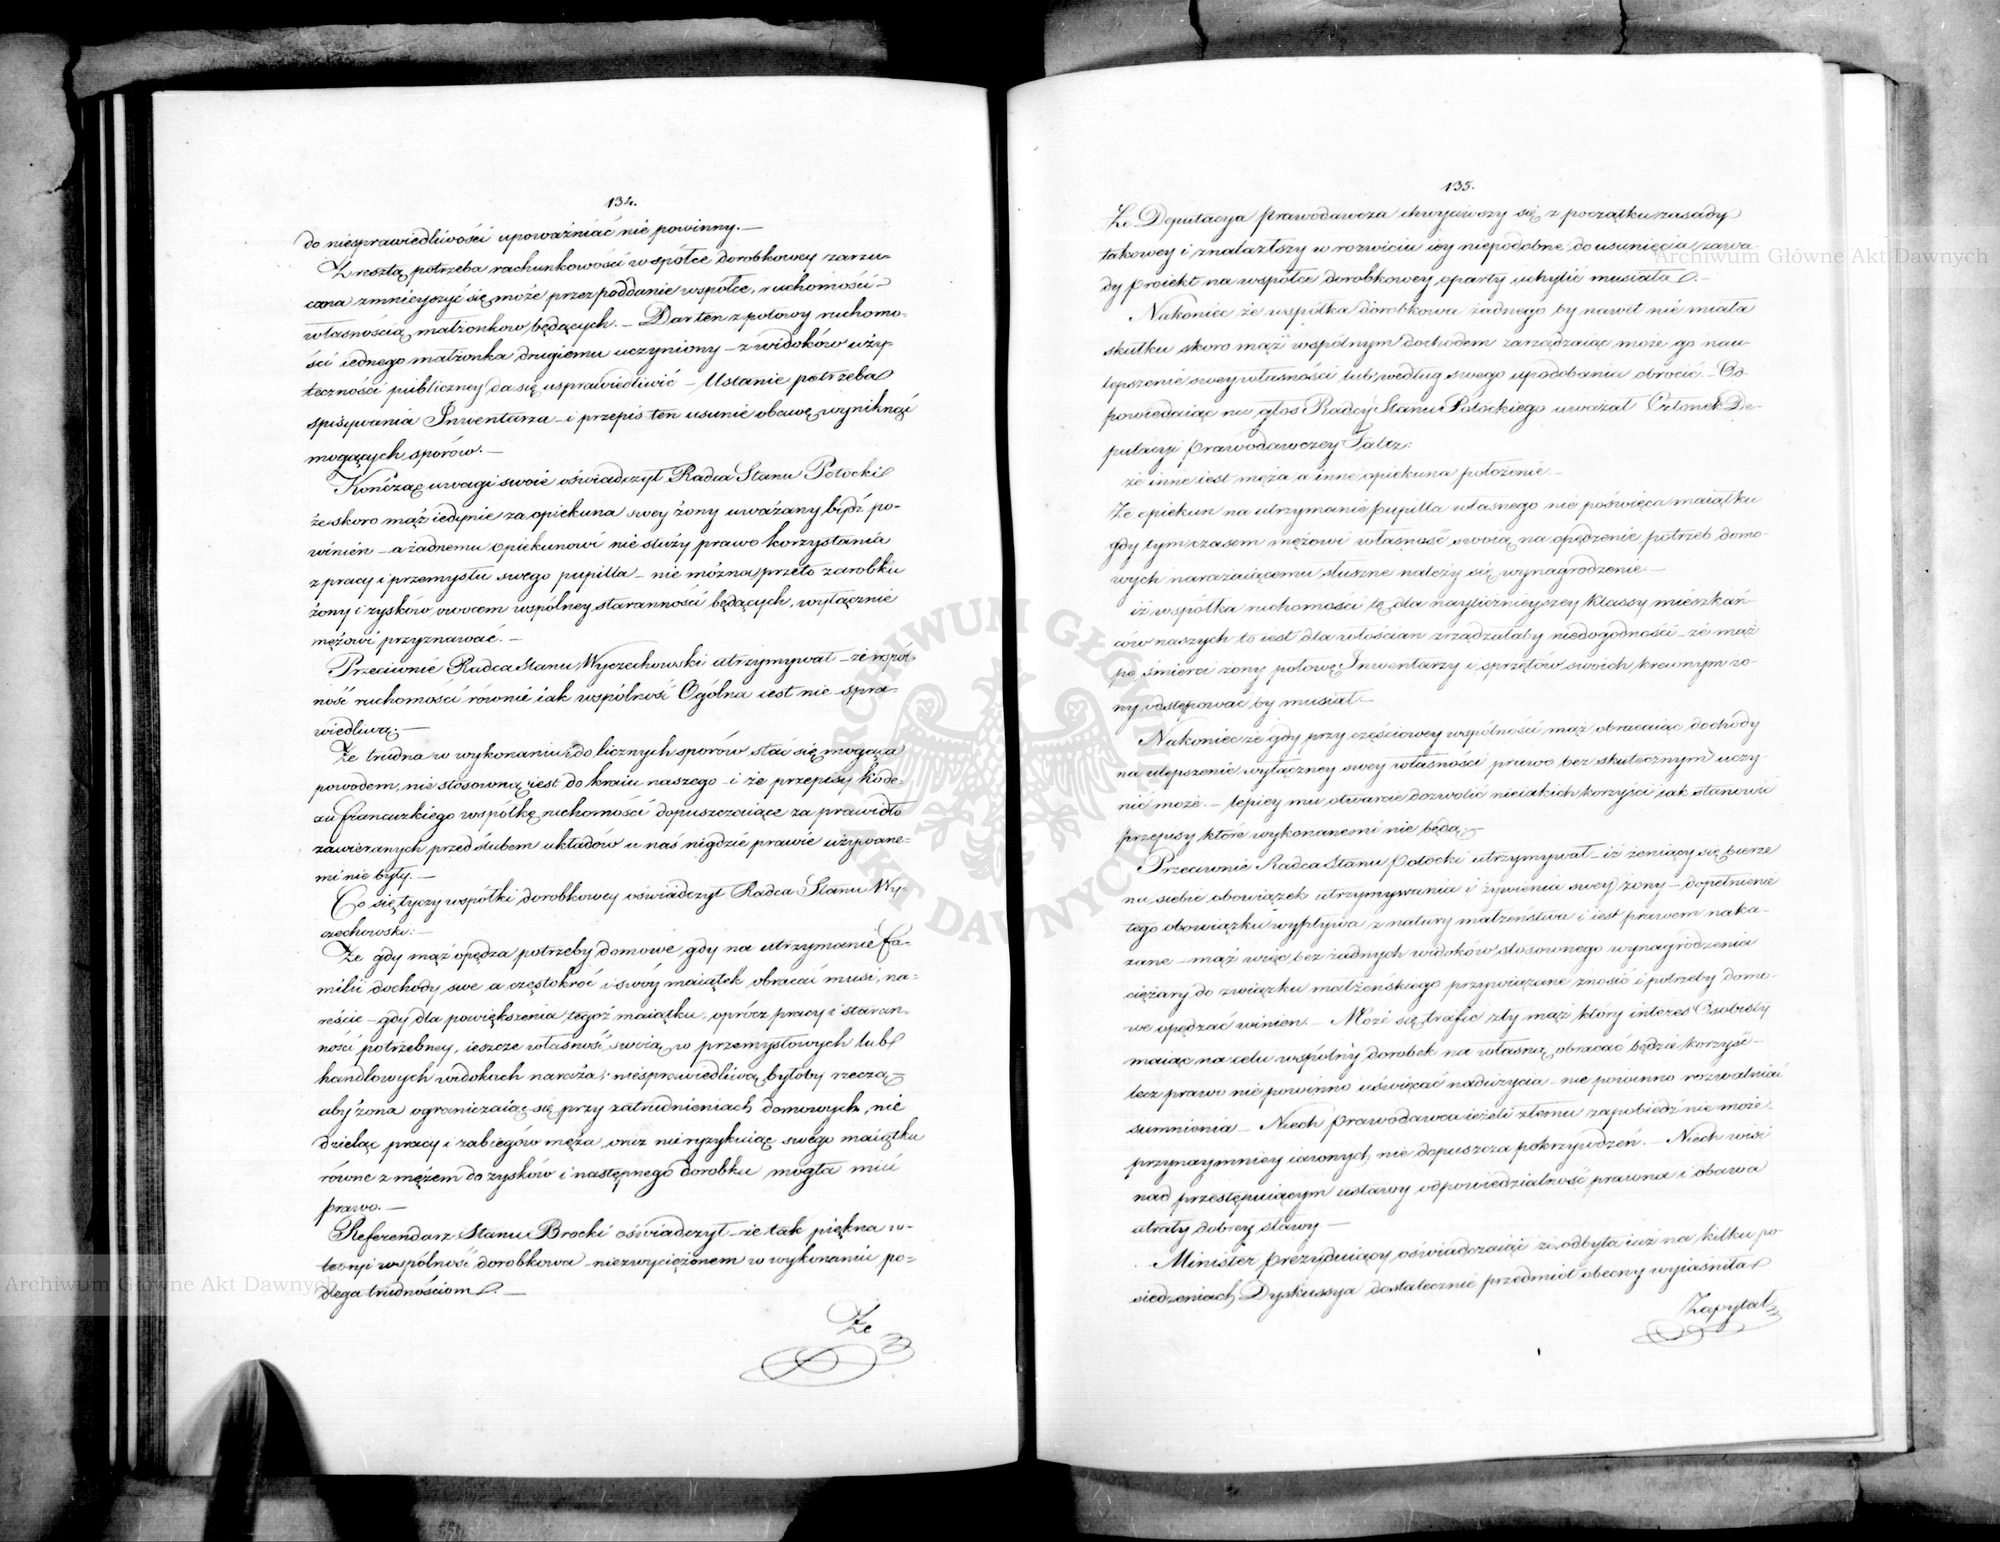 134.
do niesprawiedliwości upoważniać nie powinny. —
Zresztą potrzeba rachunkowości w spółce dorobkowey zarzu-
cona zmnieyszyć się może przez poddanie współce, ruchomości
własnością małżonkow będących. — Dar ten z połowy ruchomo-
ści iednego małżonka drugiemu uczyniony — z widoków uży-
teczności publiczney da się usprawiedliwić — Ustanie potrzeba
spisywania Inwentarza — i przepis ten usunie obawę wyniknąć
mogących sporów. —
Kończąc uwagi swoie oświadczył Radca Stanu Potocki
że skoro mąż iedynie za opiekuna swey żony uważany bydź po-
winien — a żadnemu opiekunowi nie służy prawo korzystania
z pracy i przemysłu swego pupilla — nie można przeto zarobku
żony i zysków owocem wspólney staranności będących, wyłącznie
mężowi przyznawać. —
Przeciwnie Radca Stanu Wyczechowski utrzymywał — że wspól-
ność ruchomości równie iak wspólność Ogólna iest nie spra-
wiedliwą. —
Że trudna w wykonaniu i do licznych sporów stać się mogąca
powodem, nie stosowną iest do kraiu naszego — i że przepisy Kode-
xu francuzkiego wspólkę ruchomości dopuszczaiące za prawidło
zawieranych przed ślubem układów u nas nigdzie prawie używane-
mi nie były. —
Co się tyczy wspólki dorobkowey oświadczył Radca Stanu Wy-
czechowski: —
Że gdy mąż opędza potrzeby domowe gdy na utrzymanie fa-
milii dochody swe a częstokroć i swóy maiątek obracać musi, na-
reście — gdy dla powiększenia tegoż maiątku, oprócz pracy i staran-
ności potrzebney, ieszcze własność swoią w przemysłowych lub
handlowych widokach naraża; niesprawiedliwą byłoby rzeczą
aby żona ograniczaiąc się przy zatrudnieniach domowych, nie
dzieląc pracy i zabiegów męża, oraz nie ryzykuiąc swego maiątku
równe z mężem do zysków i następnego dorobku mogła mieć
prawo. —
Referendarz Stanu Brocki oświadczył — że tak piękna w
teoryi wspólność dorobkowa niezwyciężonem w wykonaniu po-
dlega trudnościom. —
Że
135.
Że Deputacya prawodawcza chwyciwszy się z początku zasady
takowey i znalazłszy w rozwiciu iey niepodobne do usunięcia zawa-
dy proiekt na wspólce dorobkowey oparty uchylić musiała. —
Nakoniec że wspólka dorobkowa żadnego by nawet nie miała
skutku skoro mąż wspólnym dochodem zarządzaiąc może go na u-
lepszenie swey własności lub według swego upodobania obrócić. — Od-
powiedaiąc na głos Radcy Stanu Potockiego uważał Członek De-
putacyi prawodawczey Faltz:
że inne iest męża a inne opiekuna położenie —
Że opiekun na utrzymanie pupilla własnego nie poświęca maiątku
gdy tymczasem mężowi własność swoią na opędzenie potrzeb domo-
wych narażaiącemu słuszne należy się wynagrodzenie —
iż wspólka ruchomości tę dla nayliczneyszey klassy mieszkań-
ców naszych to iest dla włościan zrządzałaby niedogodność — że mąż
po śmierci żony połowę Inwentarzy i sprzętów swoich krewnym żo-
ny odstępować by musiał —
Nakoniec że gdy przy częściowey wspólności mąż obracaiąc dochody
na ulepszenie wyłączney swey własności prawo bez skutecznym uczy-
nić może. — lepiey mu otwarcie dozwolić nieiakich korzyści iak stanowić
przepisy które wykonanemi nie będą. —
Przeciwnie Radca Stanu Potocki utrzymywał — iż żeniący się bierze
na siebie obowiązek utrzymywania i żywienia swey żony — dopełnienie
tego obowiązku wypływa z natury małżeństwa i iest prawem naka-
zane — mąż więc bez żadnych widoków stosownego wynagrodzenia
ciężary do związku małżeńskiego przywiązane znosić i potrzeby domo-
we opędzać winien. — Może się trafić zły mąż który interes Osobisty
maiąc na celu wspólny dorobek na własną obracać będzie korzyść —
lecz prawo nie powinno uświęcać nadużycia — nie powinno rozwalniać
sumnienia — Niech prawodawca ieżeli złemu zapobiedź nie może
przynaymniey iawnych nie dopuszcza pokrzywdzeń. — Niech wisi
nad przestępuiącym ustawy odpowiedzialność prawna i obawa
utraty dobrey sławy —
Minister prezyduiący oświadczaiąc że odbyta iuż na kilku po-
siedzeniach Dyskussya dostatecznie przedmiot obecny wyiaśniła
Zapytał
Archiwum Główne Akt Dawnych
Archiwum Główne Akt Dawnych
ARCHIWUM GŁÓWNE AKT DAWNYCH